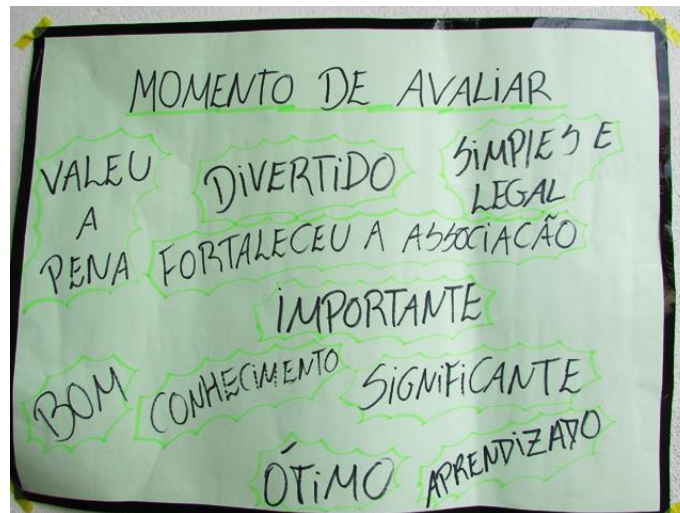 MOMENTO DE AVALIAR
VALEU
A
PENA
DIVERTIDO
SIMPLES E
LEGAL
FORTALECEU A ASSOCIACÃO
IMPORTANTE
BOM
CONHECIMENTO
SIGNIFICANTE
ÓTIMO
APRENDIZADO